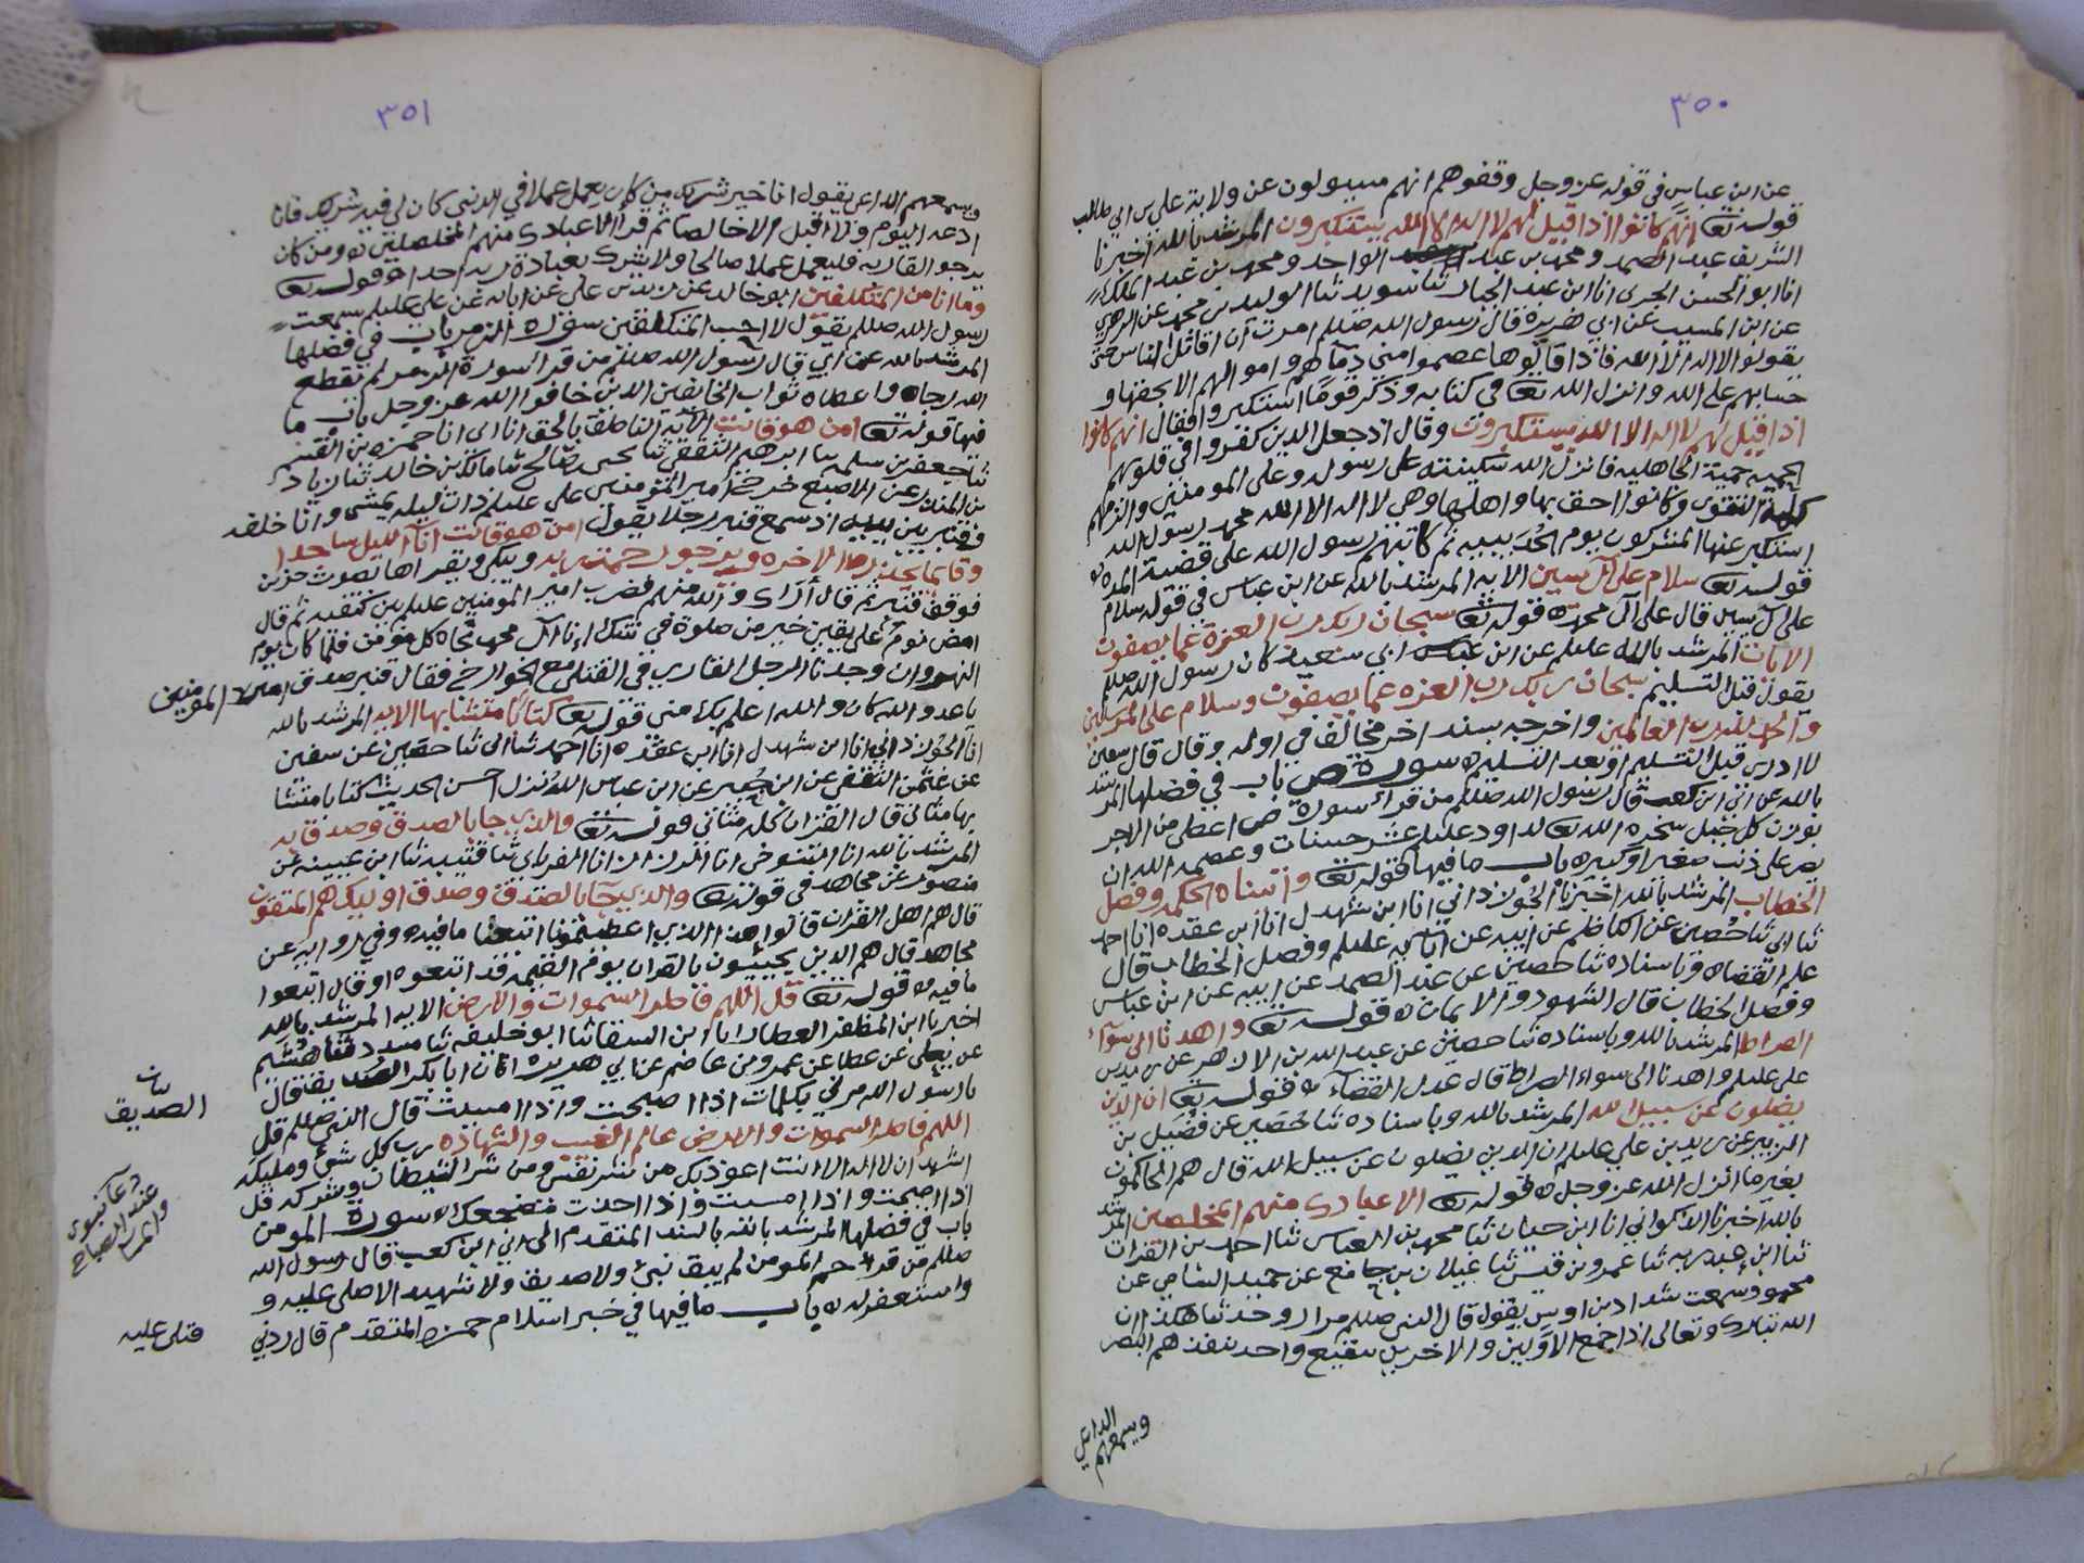 ٣٥٠
عن ابن عباس في قوله عز وجل وقفوهم انهم مسيولون عن ولاية علي بن ابي طالب
قوله تعا انهم كانوا اذا قيل لهم لا اله الا الله يستكبرون المرشد بالله اخبرنا
الشريف عبد الصمد ومحمد بن عبد الواحد ومحمد بن عبد الملك
انا ابو الحسن انا ابن عبد الجبار ثنا سويد ثنا الوليد بن محمد عن الزهري
عن ابن المسيب عن ابي هريرة قال رسول الله صللم امرت ان اقاتل الناس حتى
يقولوا لا اله الا الله فاذا قالوها عصموا مني دمآهم واموالهم الا بحقها و
حسابهم على الله وانزل الله تعا في كتابه وذكر قومًا استكبروا فقال انهم كانوا
اذا قيل لهم لا اله الا الله يستكبرون وقال اذ جعل الذين كفروا في قلوبهم
الحميه حمية الجاهليه فانزل الله سكينته على رسوله وعلى المومنين والزمهم
كلمة التقوى وكانوا احق بها واهلها وهي لا اله الا الله محمد رسول الله
استكبر عنها المشركون يوم الحديبيه ثم كاتبهم رسول الله على قضية المده
قوله تعا سلام على آل يسين الايه المرشد بالله عن ابن عباس في قوله سلام
على آل يسين قال على آل محمد قوله تعا سبحان ربك رب العزة عما يصفون
الايات المرشد بالله عن ابي سعيد كان رسول الله صللم
يقول قبل التسليم سبحان ربك رب العزه عما يصفون وسلام على المرسلين
والحمد لله رب العالمين واخرجه بسند اخر مخالف في اوله وقال قال
لا ادري قبل التسليم او بعد التسليم سورة ص باب في فضلها المرشد
بالله عن ابي ابن كعب قال رسول الله صللم من قراء سورة ص اعطي من الاجر
بوزن كل جبل سخره الله تعا لداود عليلم عشر حسنات وعصمه الله ان
يصر على ذنب صغير او كبير باب ما فيها قوله تعا واتيناه الحكمه وفصل
الخطاب المرشد بالله اخبرنا الجوزداني انا ابن شهدل انا ابن عقده انا احمد
ثنا ابي ثنا حُصين عن الكاظم عن ابيه عن آبائه عليلم وفصل الخطاب قال
علم القضاء وباسناده ثنا حصين عن عبد الصمد عن ابيه عن ابن عباس
وفصل الخطاب قال الشهود والايمان قوله تعا واهدنا الى سوآء
الصراط المرشد بالله وباسناده ثنا حصين عن عبد الله بن الازهر عن زيد بن
علي عليلم واهدنا الى سواء الصراط قال عدل القضآء قوله تعا ان الذين
يضلون عن سبيل الله المرشد بالله وباسناده ثنا حُصين عن فُضيل بن
الزبير عن زيد بن علي عليلم ان الذين يضلون عن سبيل الله قال هم الحاكمون
بغير ما انزل الله عز وجل قوله تعا الا عبادك منهم المخلصين المرشد
بالله اخبرنا الذكواني انا ابن حيان ثنا محمد بن العباس ثنا احمد بن الفرات
ثنا ابن عبد ربه ثنا عمرو بن قيس ثنا غيلان بن جامع عن حميد الشامي عن
محمود سمعت شداد بن اوس يقول قال النبي صللم وحدثنا هكذا ان
الله تبارك وتعالى اذا جمع الاولين والاخرين ببقيع واحد ينفذهم البصر
ويسمعهم الداعي
٣٥١
ويسمعهم الداعي يقول انا خير شريك من كان يعمل عملا في الدنيا كان لي فيه شريك فانا
ادعه اليوم ولا اقبل الا خالصا ثم قرا الا عبادك منهم المخلصين ومن كان
يرجو القا ربه فليعمل عملا صالحا ولا يشرك بعبادة ربه احدا قوله تعا
وما انا من المتكلفين ابو خالد عن زيد بن علي عن ابائه عن علي عليلم سمعت
رسول الله صللم يقول لا احب المتكلفين سورة الزمر باب في فضلها
المرشد بالله عن ابي قال رسول الله صللم من قرا سورة الزمر لم يقطع
الله رجاه واعطاه ثواب الخايفين الذين خافوا الله عز وجل باب ما
فيها قوله تعا امن هو قانت الايه الناطق بالحق انا ابي انا حمزه بن القسم
ثنا جعفر بن سلمه ثنا ابرهيم الثقفي ثنا يحيى بن صالح ثنا مالك بن خالد ثنا زياد
بن المنذر عن الاصبغ خرج امير المومنين علي عليلم ذات ليله يمشي وانا خلفه
وقنبر بين يديه اذ سمع قنبر رجلا يقول امن هو قانت اناآ الليل ساجدا
وقايما يحذر الاخره ويرجو رحمة ربه ويبكي ويقراها بصوت حزين
فوقف قنبر ثم قال اراك والله منهم فضرب امير المومنين عليلم بين كتفيه ثم قال
امض نوم على يقين خير من صلوة في شك انا آل محمد نجاه كل مؤمن فلما كان يوم
النهروان وجدنا الرجل القاري في القتلى مع الخوارج فقال قنبر صدق امير المومنين
يا عدو الله كان والله اعلم بك مني قوله تعا كتابًا متشابها الايه المرشد بالله
انا الجوزداني انا ابن شهدل انا ابن عقده انا احمد ثنا ابي ثنا حصين عن سفين
عن عثمن الثقفي عن ابن جُبير عن ابن عباس الله نزل احسن الحديث كتابا متشا
بها مثاني قال القران كله مثاني قوله تعا والذي جا بالصدق وصدق به
المرشد بالله انا التنوخي انا ثنا قتيبه ثنا ابن عيينه عن
منصور عن مجاهد في قوله تعا والذي جآ بالصدق وصدق اوليك هم المتقون
قال هم اهل القران قالوا هذا الذي اعطيتمونا اتبعنا ما فيه وفي روايه عن
مجاهد قال هم الذين يجيئون بالقران يوم القيمه قد اتبعوه او قال اتبعوا
ما فيه قوله تعا قل اللهم فاطر السموات والارض الايه المرشد بالله
اخبرنا ابن المظفر العطار انا ابن السقا ثنا ابو خليفه ثنا مسدد ثنا هُشيم
عن يعلى عن عطا عن عمرو بن عاصم عن ابي هريره ان ابا بكر الصد يق قال
بيان الصديق
يا رسول الله مرني بكلمات اذا اصبحت واذا امسيت قال النبي صللم قل
اللهم فاطر السموات والارض عالم الغيب والشهاده رب كل شيء ومليكه
دعآ نبوى عند الصباح والمسا
اشهد ان لا اله الا انت اعوذ بك من شر نفسي ومن شر الشيطان وشركه قل
اذا اصبحت واذا امسيت واذا اخذت مضجعك سورة المومن
باب في فضلها المرشد بالله بالسند المتقدم الى ابي ابن كعب قال رسول الله
صللم من قرا حم المومن لم يبق نبي ولا صديق ولا شهيد الا صلى عليه و
واستغفر له باب ما فيها في خبر اسلام حمزه المتقدم قال ردني
قتلي عليه